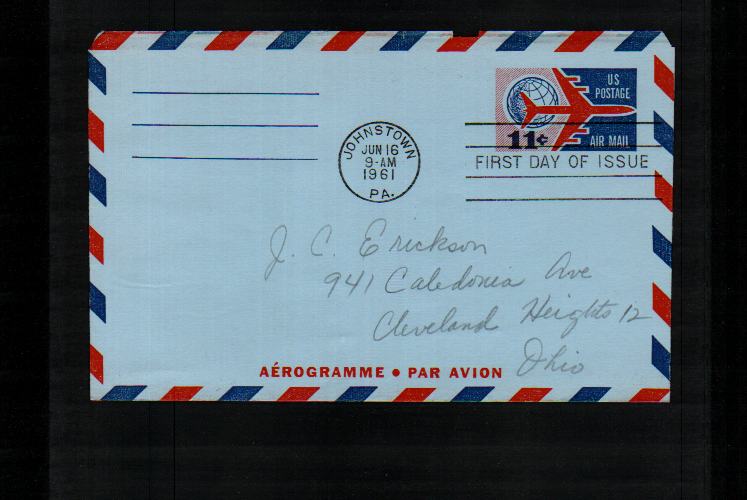 US
POSTAGE
11¢
AIR MAIL
JOHNSTOWN
JUN 16
9-AM
1961
PA.
FIRST DAY OF ISSUE
J. C. Erickson
941 Caledonia Ave
Cleveland Heights 12
Ohio
AÉROGRAMME • PAR AVION